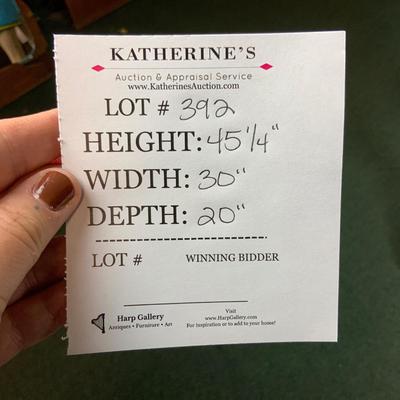 KATHERINE'S
Auction & Appraisal Service
www.KatherinesAuction.com
LOT # 392
HEIGHT: 45 1/4"
WIDTH: 30"
DEPTH: 20"
LOT # WINNING BIDDER
Harp Gallery
Antiques • Furniture • Art
Visit
www.HarpGallery.com
For Inspiration or to add to your home!